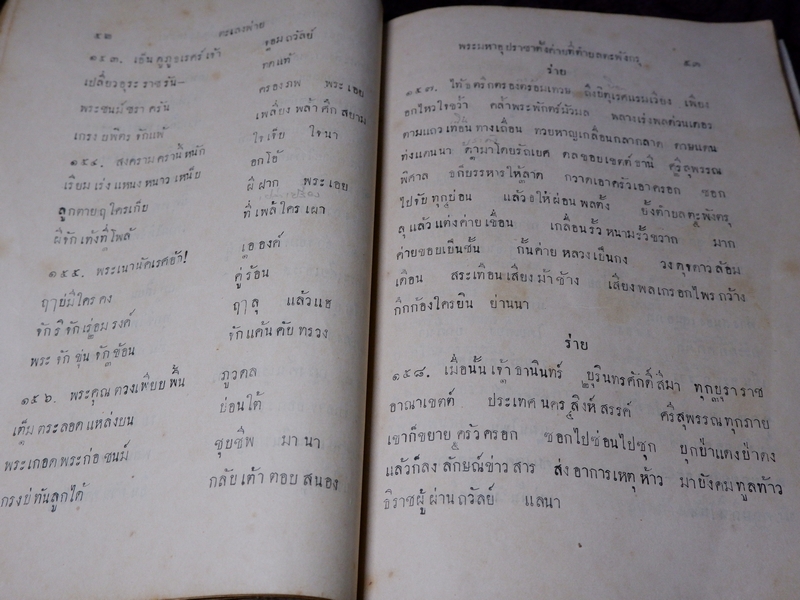 ๕๒ ตะเลงพ่าย
๑๕๓. เอ็นดูภูธเรศร์เจ้า จอมถวัลย์
เปลี่ยวอุระราชรัน— ทดแท้
พระชนม์ชราครัน ครองภพ พระเอย
เกรงบพิตรจักแพ้ เพลี่ยงพล้ำศึกสยาม
๑๕๔. สงครามครานี้หนัก ใจเจ็บ ใจนา
เรียมเร่งแหนงหนาวเหน็บ อกโอ้
ลูกตายฤใครเก็บ ผีฝาก พระเอย
ผีจักเท้งที่โพล้ ที่เพล้ใครเผา
๑๕๕. พระเนานัคเรศอ้า! เอองค์
ฤๅบ่มีใครคง คู่ร้อน
จักริจักเร่อมรงค์ ฤๅลุ แล้วแฮ
พระจักขุ่นจักข้อน จักแค้นคับทรวง
๑๕๖. พระคุณตวงเพียบพื้น ภูวดล
เต็มตระลอดแหล่งบน บ่อนใต้
พระเกอดพระก่อชนม์ ชุบชีพ มานา
กรงบ่ทันลูกได้ กลับเต้าตอบสนอง
พระมหาอุปราชาตั้งค่ายที่ตำบลตระพังกรุ ๕๓
ร่าย
๑๕๗. ไท้ธตริกตรองตรอมเทวษ ถึงบิตุเรศแรมเวียง เพียง
อกไหวใจขว้ำ คล้ำพระพักตร์มัวมล พลางเร่งพลด่วนเดอร
ตามแถวเทื่อนทางเถื่อน ทวยหาญเกลื่อนกลากลาด ดาษแดน
ท่งแดนนา คุมาโดยรัถเยศ ดลขอบเขตต์ธานี ศรีสุพรรณ
พิศาล ธก็บรรหารให้ลาด กวาดเอาครัวเอาครอก ซอก
ไปจับทุกบ่อน แล้วธให้ผ่อนพลตั้ง ยั้งตำบลตะพังตรุ
ลุแล้วแต่งค่ายเขื่อน เกลื่อนรั้วหนามรั้วขวาก มาก
ค่ายขอบเป็นขั้น กั้นค่ายหลวงเป็นกง วงดุจดาวล้อม
เดือน สระเทือนเสียงม้าช้าง เสียงพลเกรอกไพรกว้าง
กึกก้องใครยิน ย่านนา
ร่าย
๑๕๘. เมื่อนั้นเจ้าธานินทร์ บุรินทรศักดิ์สีมา ทุกบุราราช
อาณาเขตต์ ประเทศนครสิงห์สรรค์ ศรีสุพรรณทุกภาย
เขาก็ขยายครัวครอก ซอกไปซ่อนไปซุก บุกป่าแดงป่าดง
แล้วก็ลงลักษณ์ข่าวสาร ส่งอาการเหตุห้าว มาบังคมทูลท้าว
ธิราชผู้ผ่านถวัลย์ แลนา